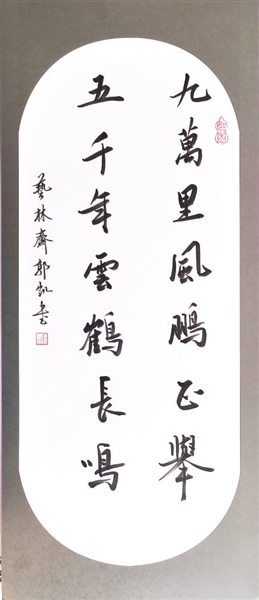 九萬里風鵬正舉
五千年雲鶴長鳴
藝林齋郭凱書